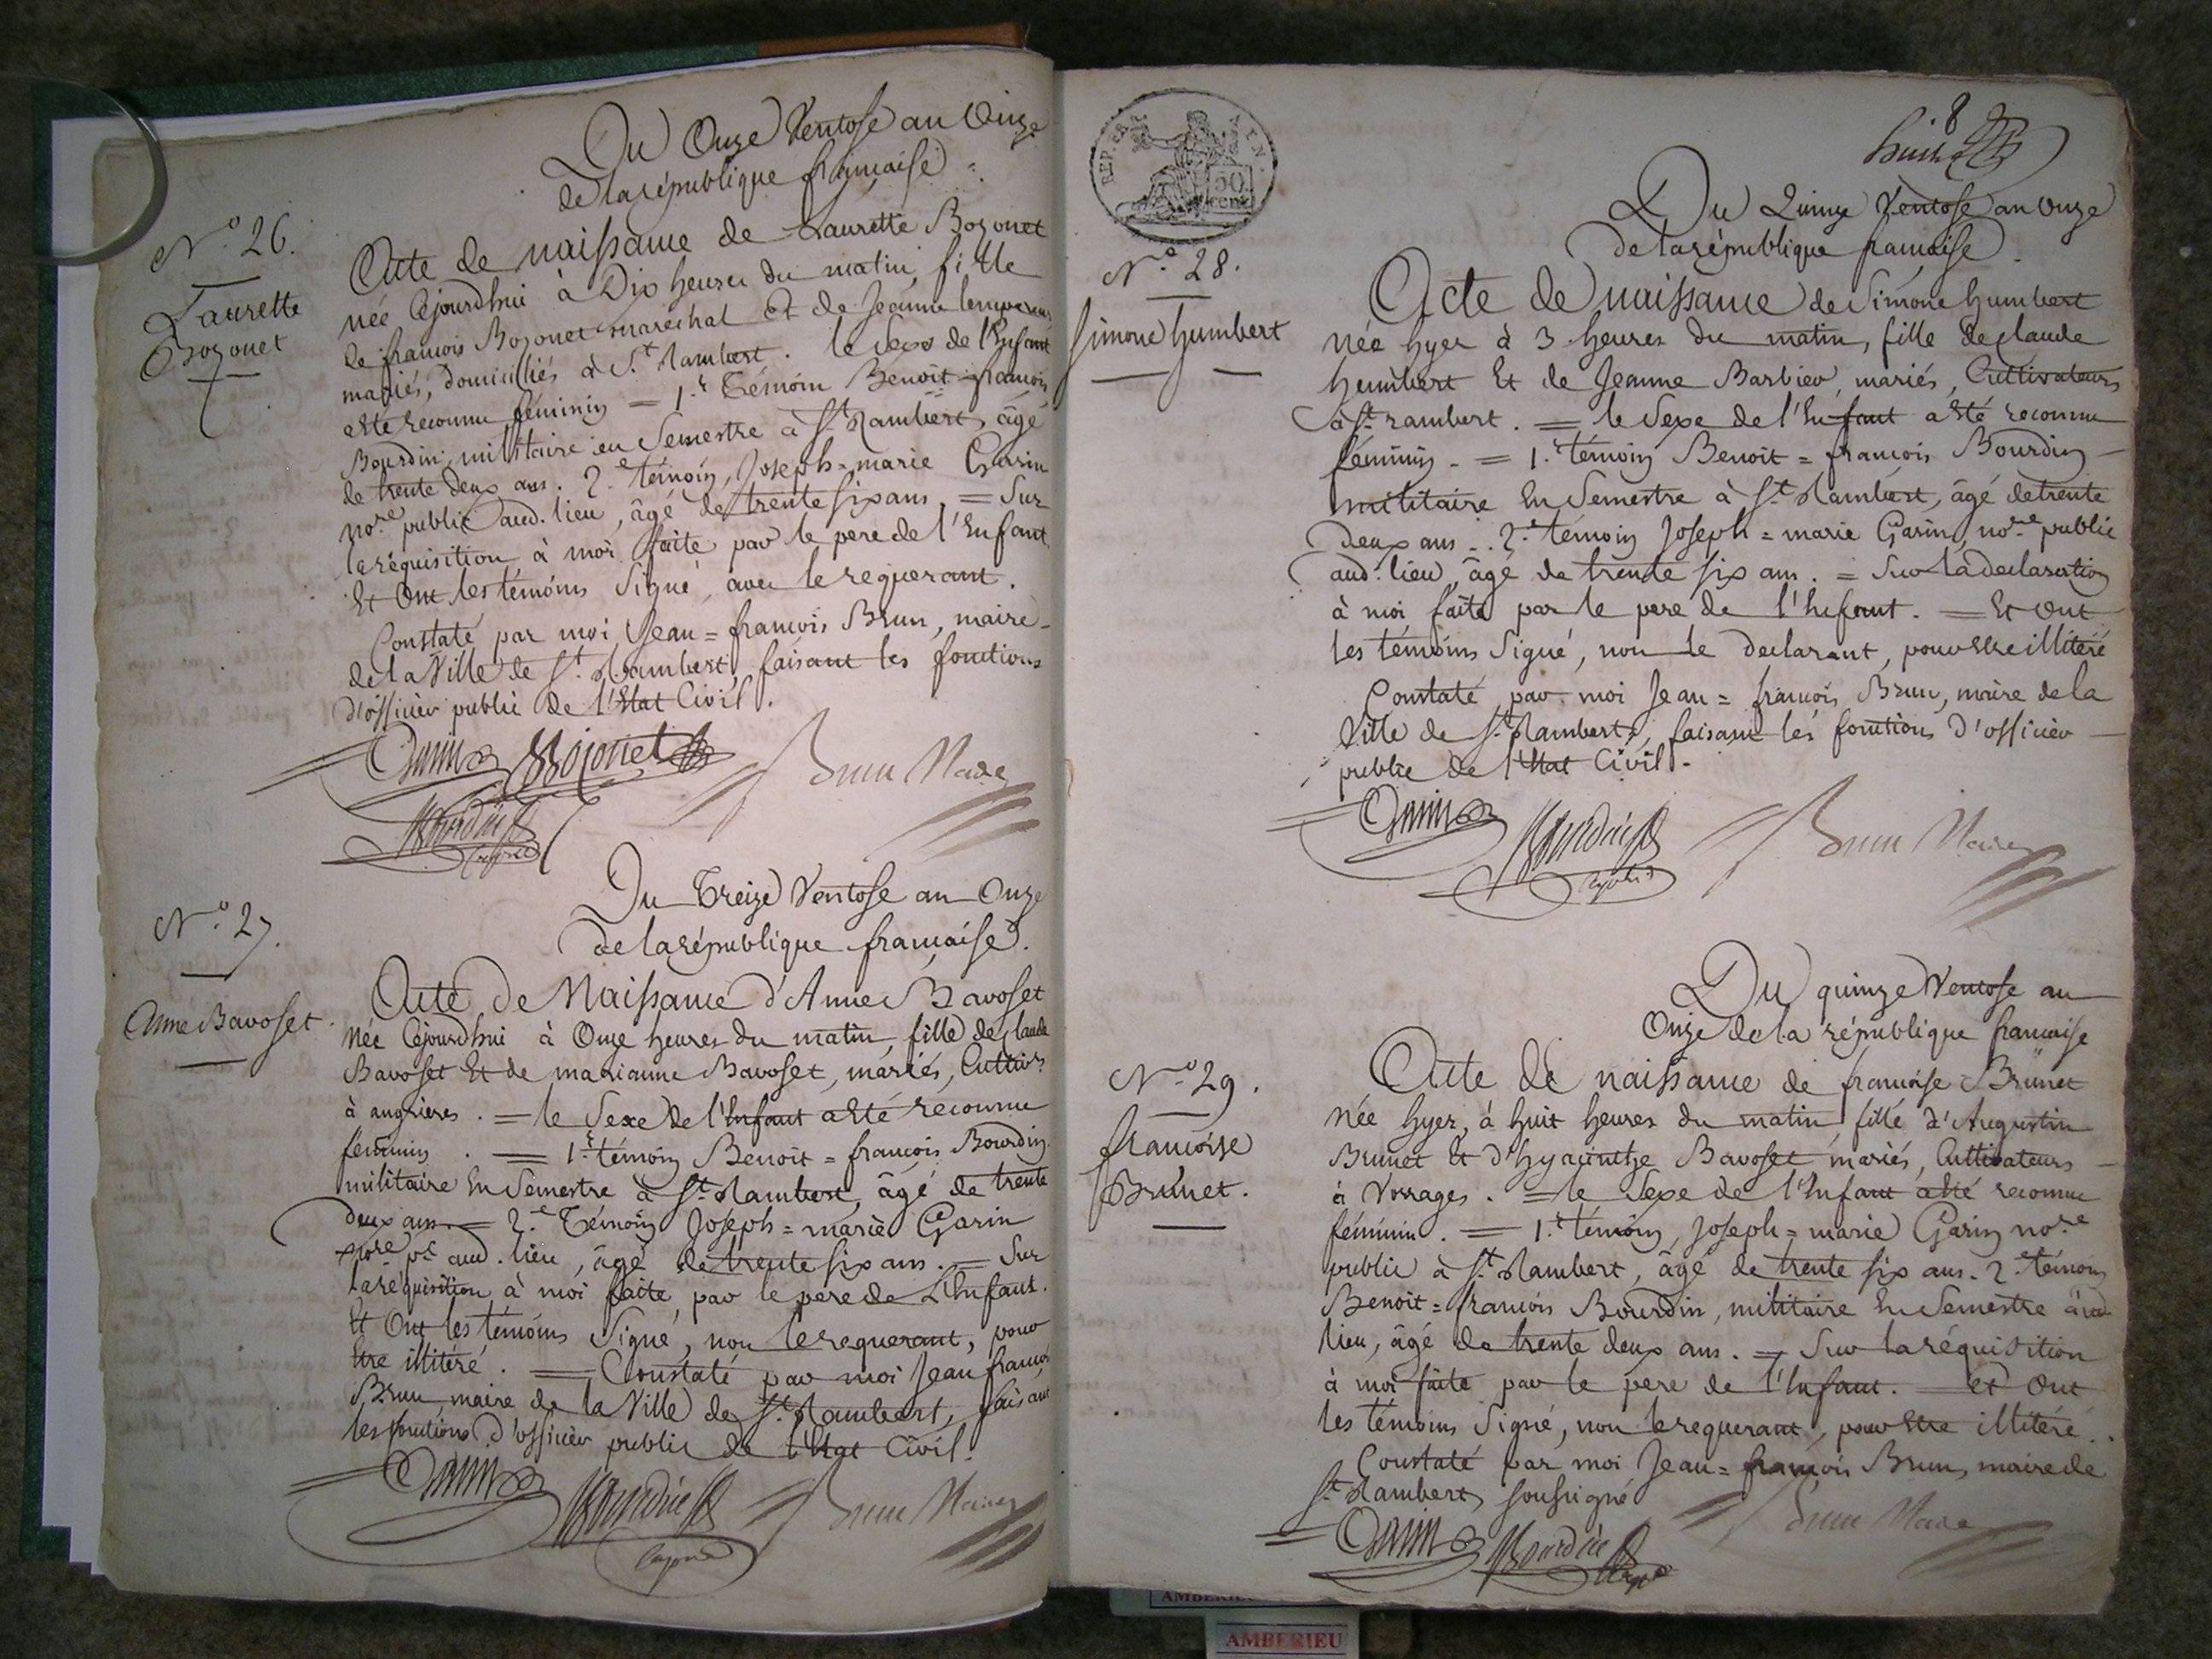 Du Onze Ventose an Onze
de la république française.
N.o 26.
Laurette
Bozonet
Acte de naissance de Laurette Bozonet
née Cejourdhui à Dix heures du matin, fille
de françois Bozonet maréchal Et de Jeanne
mariés, domiciliés à St. Rambert. le Sexe de l'Enfant
a Eté reconnu féminin = 1.r Témoin Benoit=françois
Bourdin, militaire en Semestre à St. Rambert, âgé
de trente deux ans. 2.e témoin, Joseph=marie Garin
no.re public aud. lieu, âgé de trente six ans. = Sur
la réquisition à moi faite par le pere de l'Enfant.
Et Ont les témoins Signé, avec le requerant.
Constaté par moi Jean=françois Brun, maire
de la Ville de St. Rambert, faisant les fonctions
d'officier public de l'Etat Civil.
Garin Bozonet Brun Maire
Bourdin
Du Treize Ventose an Onze
de la république française.
N.o 27.
Anne Bavoset
Acte de Naissance d'Anne Bavoset
Née Cejourdhui à Onze heures du matin, fille de Claude
Bavoset Et de marianne Bavoset, mariés, Cultiv.rs
à angrieres. = le Sexe de l'Enfant a Eté reconnu
féminin. = 1.r témoin Benoit=françois Bourdin
militaire En Semestre à St. Rambert, âgé de trente
deux ans. = 2.e Témoin Joseph=marie Garin
no.re p.c aud. lieu, âgé de trente six ans. = Sur
la requisition à moi faite par le pere de L'Enfant.
Et Ont les témoins Signé, non le requerant, pour
Etre illitéré. = Constaté par moi Jean françois
Brun, maire de la Ville de St. Rambert, faisant
les fonctions d'officier public de l'Etat Civil.
Garin Bourdin Brun Maire
REP. FRA
50
cent
8
huit
Du Quinze Ventose an Onze
de la république française.
N.o 28.
Simone humbert
Acte de naissance de Simone humbert
née hyer à 3 heures du matin, fille de claude
humbert Et de Jeanne Barbier, mariés, Cultivateurs
à St. rambert. = le Sexe de l'Enfant a Eté reconnu
féminin. = 1.r témoin Benoit=françois Bourdin
militaire En Semestre à St. Rambert, âgé de trente
deux ans. 2.e témoin Joseph=marie Garin, no.re public
aud. lieu, âgé de trente six ans. = Sur la declaration
à moi faite par le pere de l'Enfant. = Et Ont
les témoins Signé, non le declarant, pour Etre illitéré
Constaté par moi Jean=françois Brun, maire de la
Ville de St. Rambert, faisant les fonctions d'officier
public de l'Etat Civil.
Garin Bourdin Brun Maire
Du quinze Ventose an
Onze de la république française
N.o 29.
françoise
Brunet.
Acte de naissance de françoise Brunet
née hyer, à huit heures du matin, fille d'Augustin
Brunet Et d'hyacinthe Bavoset, mariés, Cultivateurs
à Vorages. = le Sexe de l'Enfant a Eté reconnu
féminin. = 1.r témoin, Joseph=marie Garin no.re
public à St. Rambert, âgé de trente six ans. 2.e témoin
Benoit=françois Bourdin, militaire En Semestre aud.
lieu, âgé de trente deux ans. = Sur la réquisition
à moi faite par le pere de l'Enfant. = Et Ont
les témoins Signé, non le requerant, pour Etre illitéré.
Constaté par moi Jean=françois Brun, maire de
St. Rambert, soussigné
Garin Bourdin Brun Maire
AMBERIEU
AMBERIEU